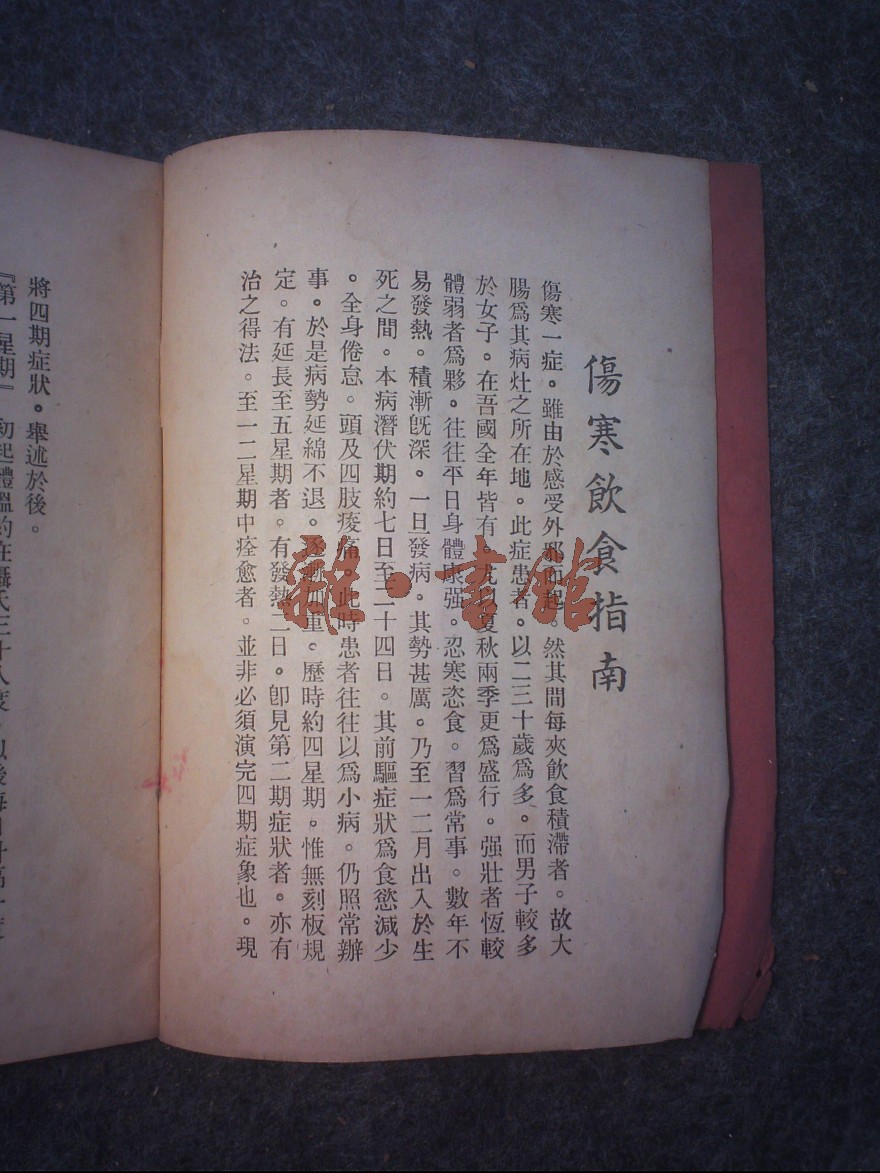 傷寒飲食指南
傷寒一症。雖由於感受外邪而起。然其間每夾飲食積滯者。故大
腸爲其病灶之所在地。此症患者。以二三十歲爲多。而男子較多
於女子。在吾國全年皆有。尤以夏秋兩季更爲盛行。强壯者恆較
體弱者爲夥。往往平日身體康强。忍寒恣食。習爲常事。數年不
易發熱。積漸旣深。一旦發病。其勢甚厲。乃至一二月出入於生
死之間。本病潛伏期約七日至二十四日。其前驅症狀爲食慾減少
。全身倦怠。頭及四肢痠痛。此時患者往往以爲小病。仍照常辦
事。於是病勢延綿不退。逐漸加重。歷時約四星期。惟無刻板規
定。有延長至五星期者。有發熱二日。卽見第二期症狀者。亦有
治之得法。至一二星期中痊愈者。並非必須演完四期症象也。現
將四期症狀。舉述於後。
『第一星期』初起體溫約在攝氏三十八度。以後每日升高一度
雜·書館